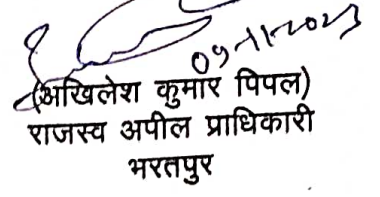 09-11-2023
(अखिलेश कुमार पिपल)
राजस्व अपील प्राधिकारी
भरतपुर